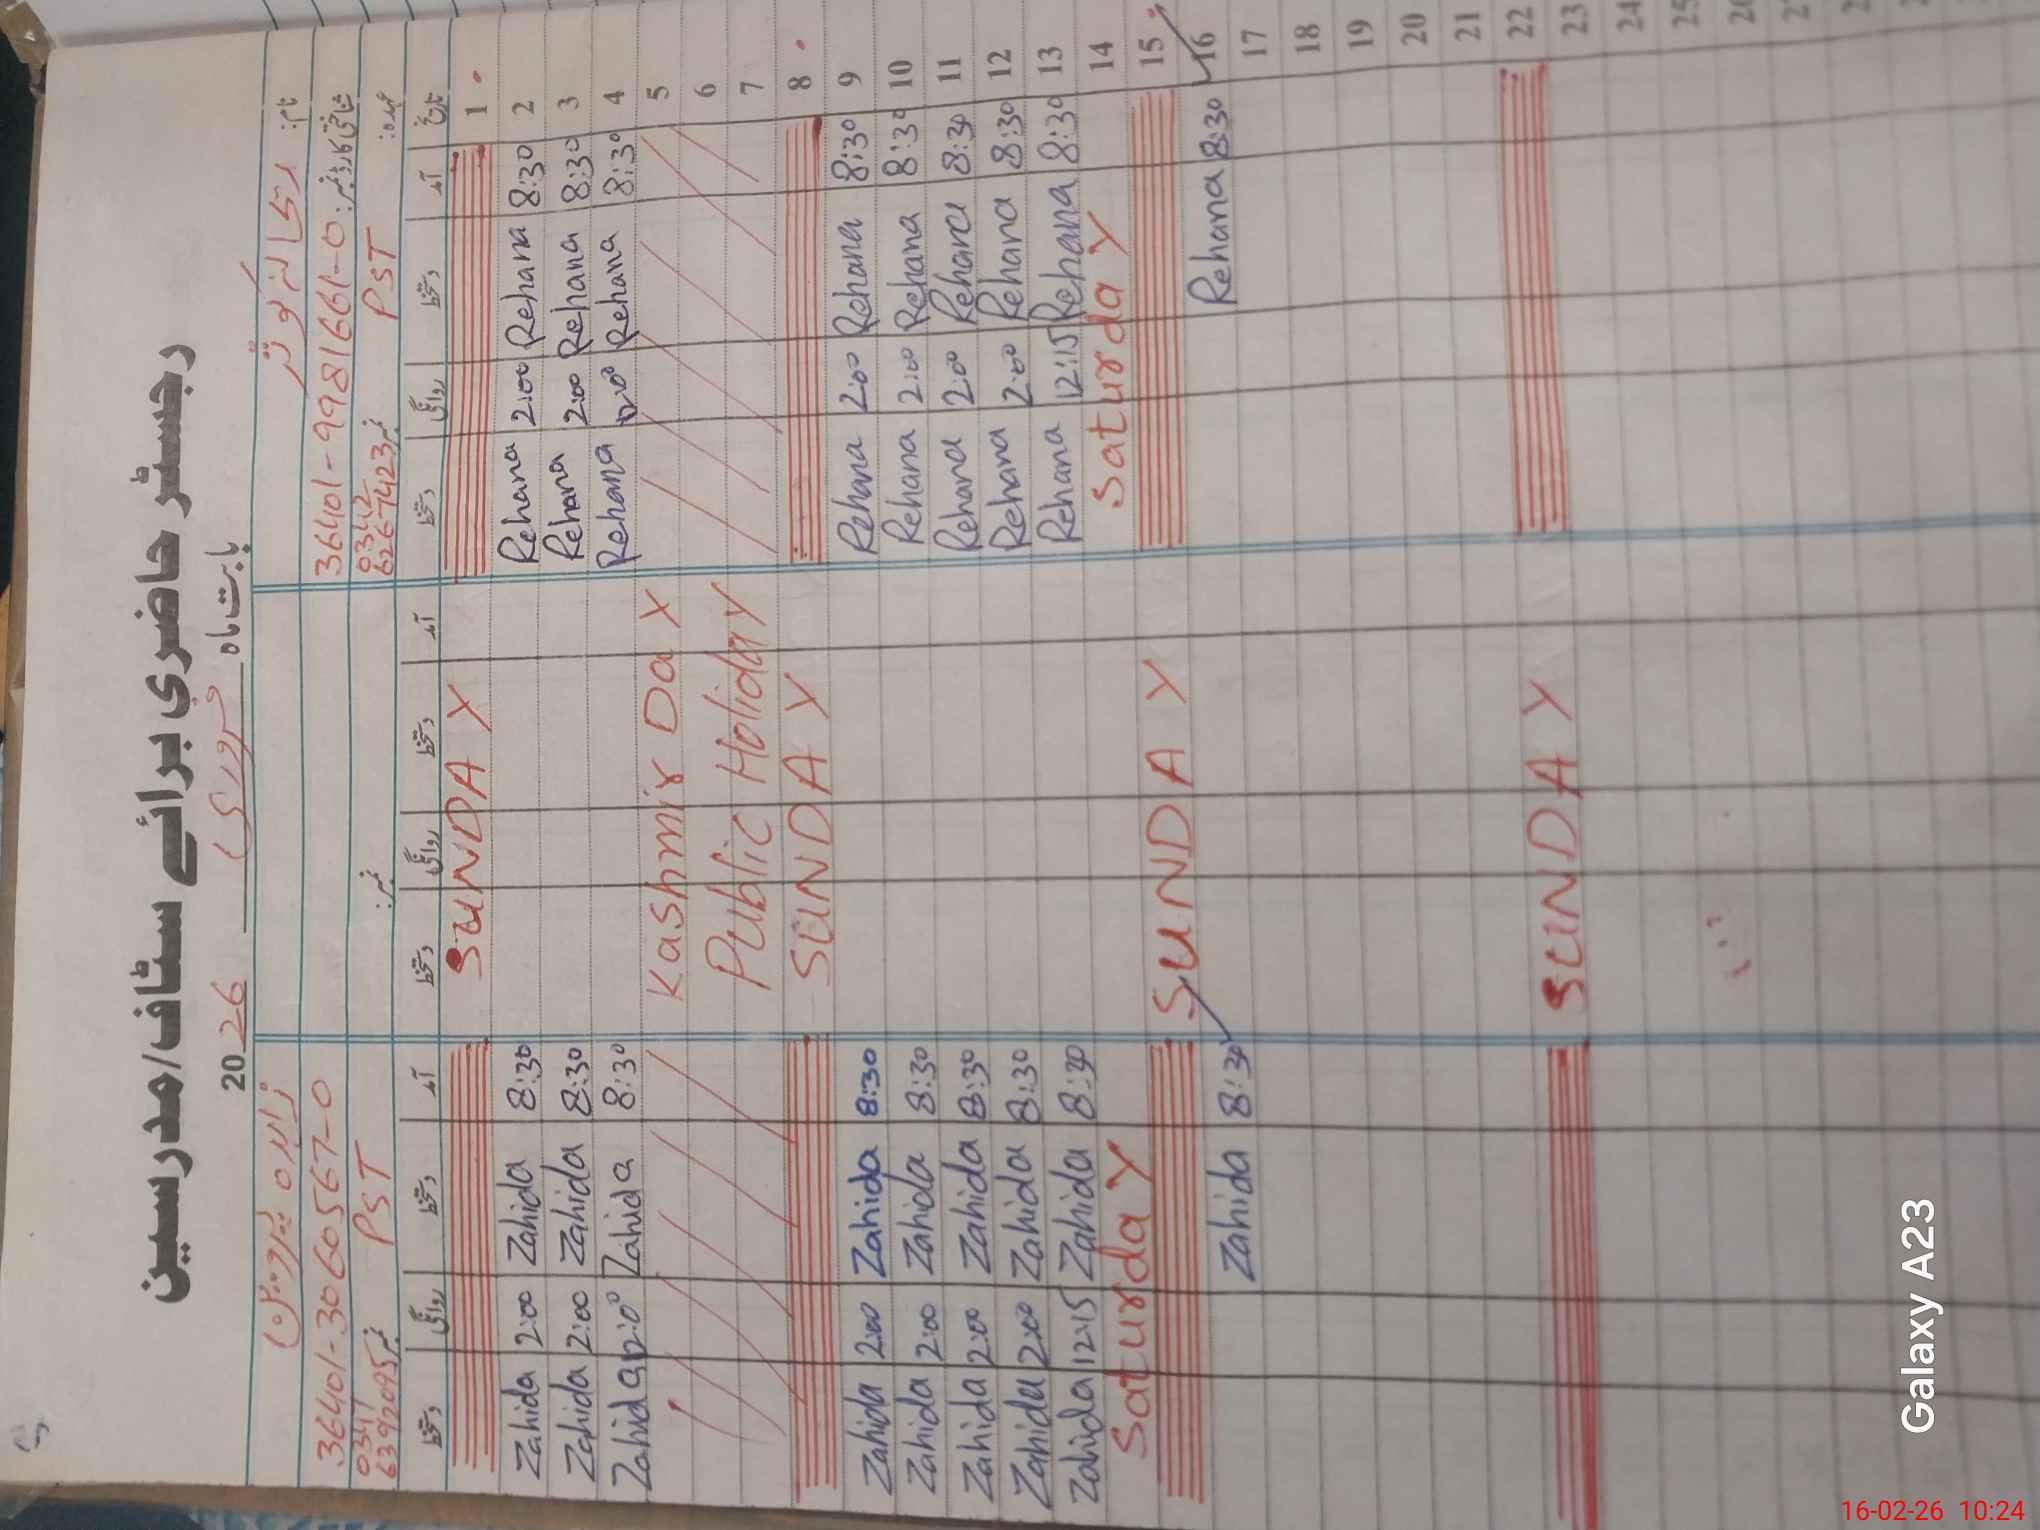 رجسٹر حاضری برائے سٹاف/مدرسین
بابت ماہ فروری 2026
نام: ریحانہ کوثر زاہدہ پروین
شناختی کارڈ نمبر: 36401-9981661-0 36401-3060567-0
عہدہ: PST نمبر 0342 6267423 نمبر: PST نمبر 0347 6392095
تاریخ آمد دستخط روانگی دستخط آمد دستخط روانگی دستخط آمد دستخط روانگی دستخط
1 SUNDAY
2 8:30 Rehana 2:00 Rehana 8:30 Zahida 2:00 Zahida
3 8:30 Rehana 2:00 Rehana 8:30 Zahida 2:00 Zahida
4 8:30 Rehana 2:00 Rehana 8:30 Zahida 2:00 Zahida
5 Kashmir Day
6
7 Public Holiday
8 SUNDAY
9 8:30 Rehana 2:00 Rehana 8:30 Zahida 2:00 Zahida
10 8:30 Rehana 2:00 Rehana 8:30 Zahida 2:00 Zahida
11 8:30 Rehana 2:00 Rehana 8:30 Zahida 2:00 Zahida
12 8:30 Rehana 2:00 Rehana 8:30 Zahida 2:00 Zahida
13 8:30 Rehana 12:15 Rehana 8:30 Zahida 12:15 Zahida
14 Saturday Saturday
15 SUNDAY
16 8:30 Rehana 8:30 Zahida
17
18
19
20
21
22 SUNDAY
23
24
25
26
27
Galaxy A23
16-02-26 10:24